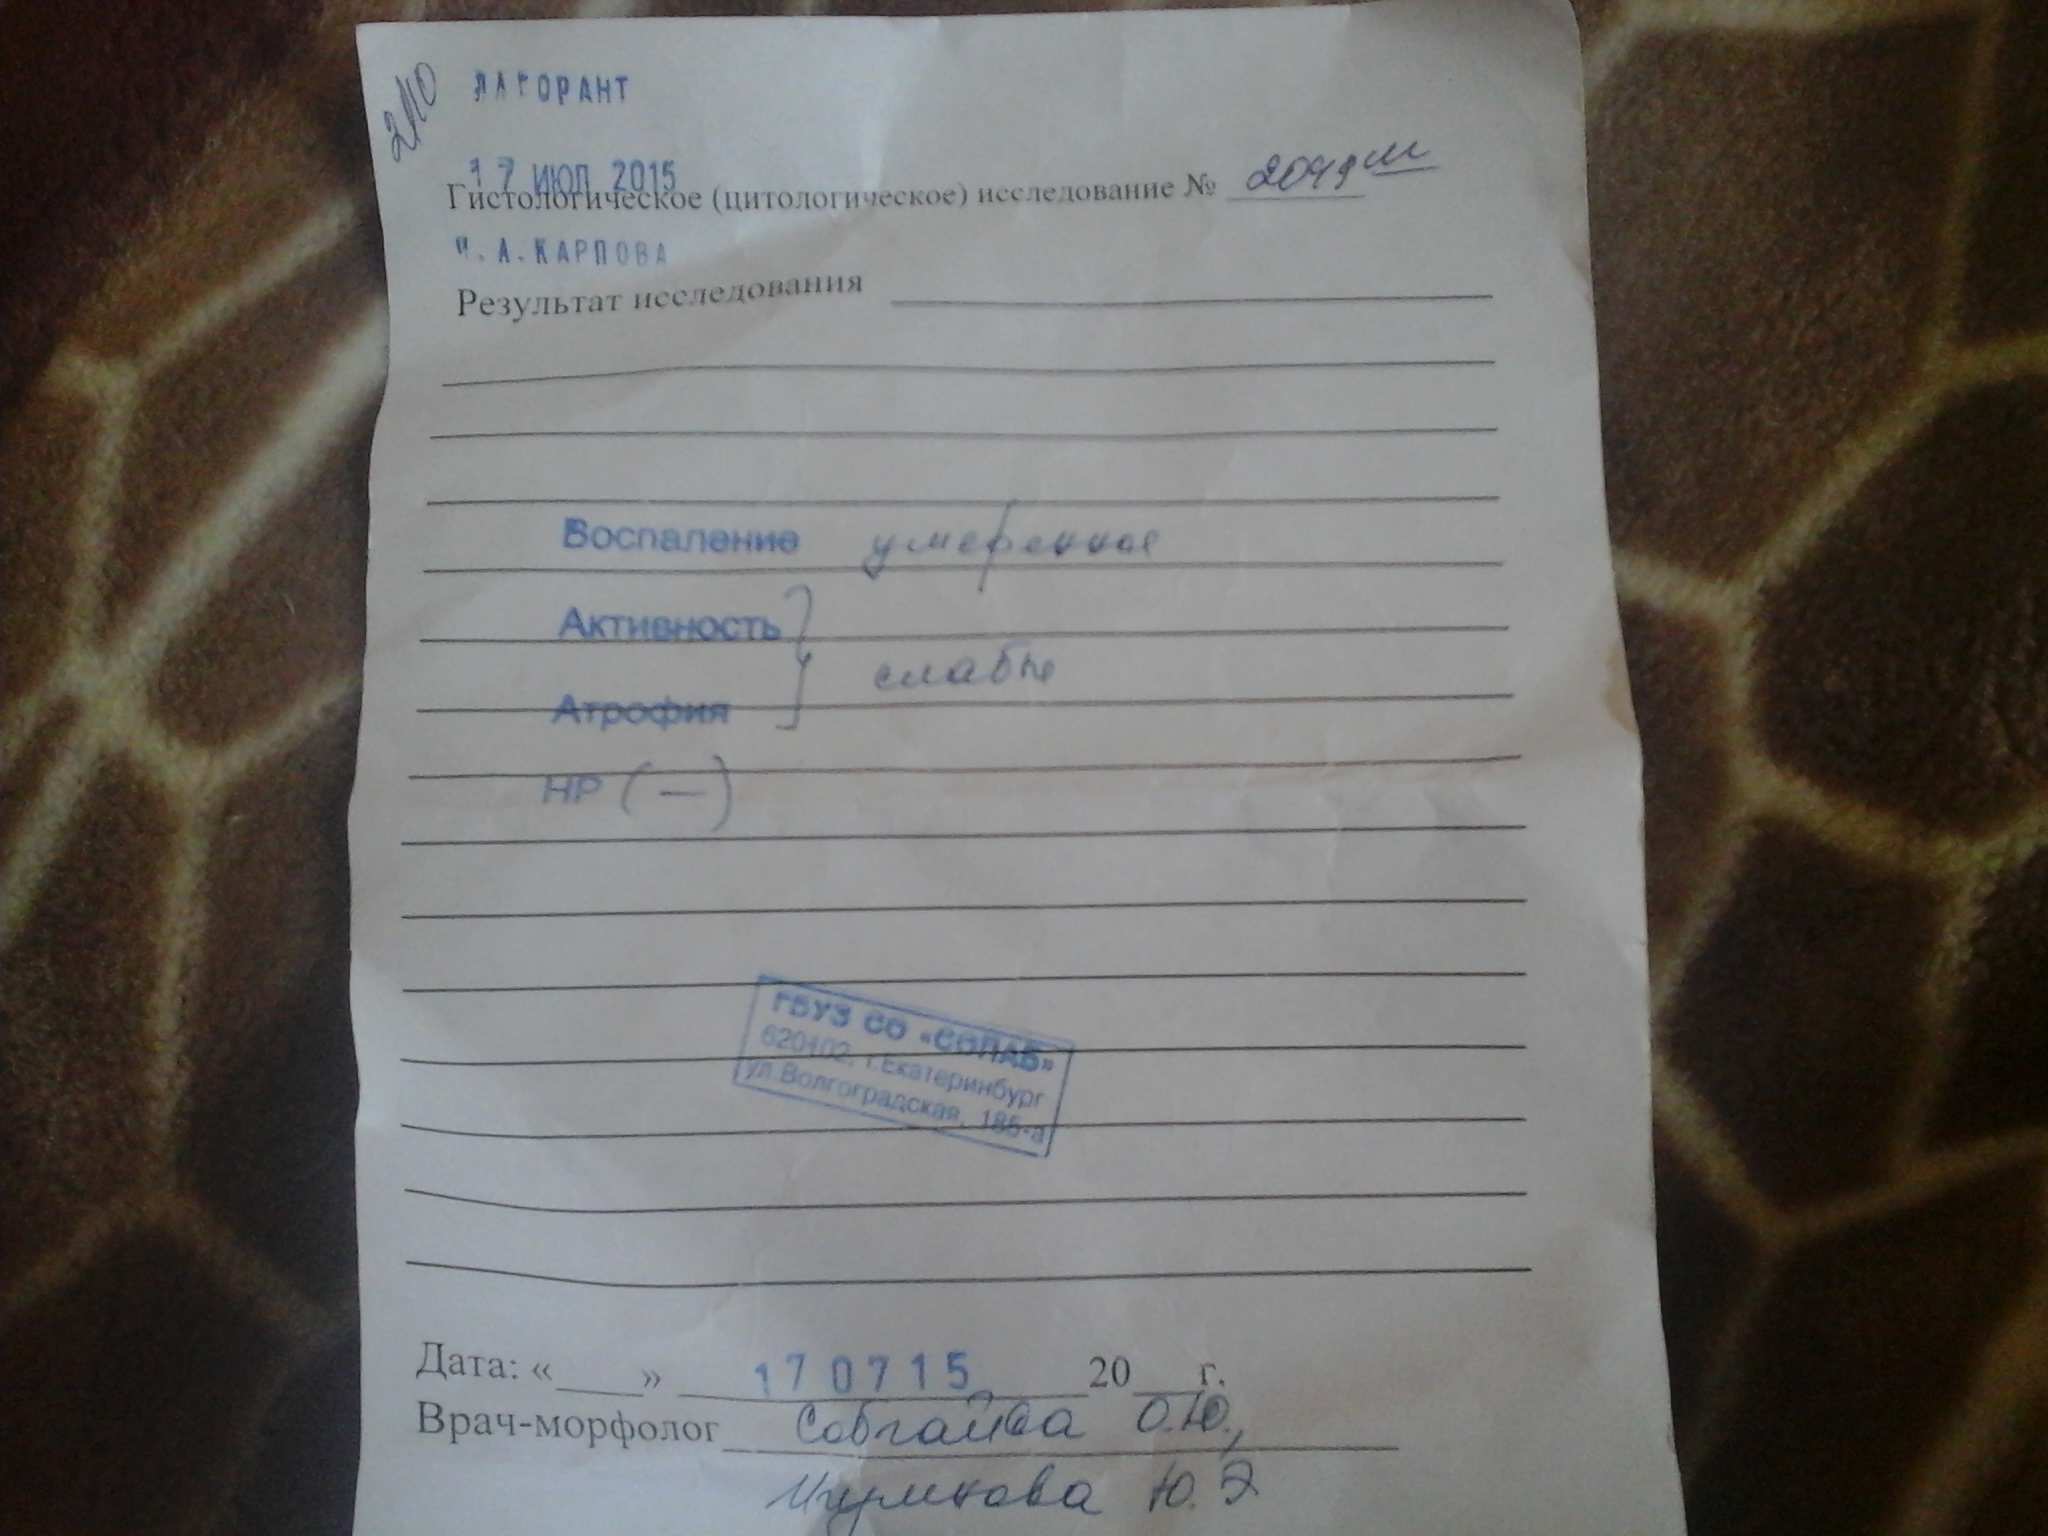 2МО
ЛАБОРАНТ
17 ИЮЛ 2015
Гистологическое (цитологическое) исследование № 2049 м
Ч. А. КАРПОВА
Результат исследования
Воспаление умеренное
Активность
слабые
Атрофия
HP (—)
ГБУЗ СО «СОПАБ»
620102, г.Екатеринбург
ул.Волгоградская, 185-а
Дата: «____» 170715 20___г.
Врач-морфолог Собгайда О.Ю.,
Ю. Э